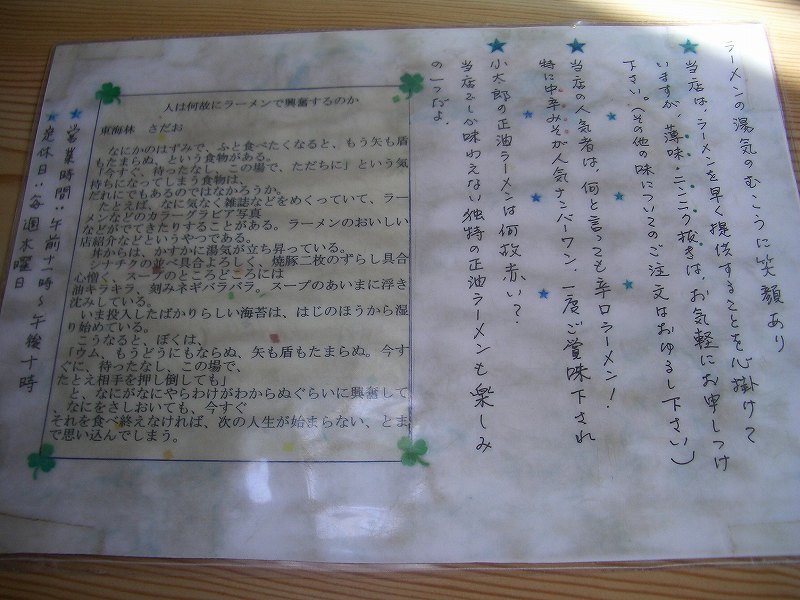 ラーメンの湯気のむこうに笑顔あり
★当店は、ラーメンを早く提供することを心掛けて
いますが、薄味・ニンニク抜きは、お気軽にお申しつけ
下さい。(その他の味についてのご注文はおゆるし下さい)
★当店の人気者は、何と言っても辛口ラーメン！
特に中辛みそが人気ナンバーワン、一度ご賞味下され
★小太郎の正油ラーメンは何故赤い？
当店でしか味わえない独特の正油ラーメンも楽しみ
の一つだよ。
人は何故にラーメンで興奮するのか
東海林　さだお
なにかのはずみで、ふと食べたくなると、もう矢も盾
もたまらぬ、という食物がある。
「今すぐ、待ったなし、この場で、ただちに」という気
持ちになってしまう食物は、
だれにでもあるのではなかろうか。
たとえば、なに気なく雑誌などをめくっていて、ラー
メンなどのカラーグラビア写真
などがでてきたりすることがある。ラーメンのおいしい
店紹介などというやつである。
丼からは、かすかに湯気が立ち昇っている。
シナチクの並べ具合よろしく、焼豚二枚のずらし具合
心憎く、スープのところどころには
油キラキラ、刻みネギパラパラ。スープのあいまに浮き
沈みしている。
いま投入したばかりらしい海苔は、はじのほうから湿
り始めている。
こうなると、ぼくは、
「ウム、もうどうにもならぬ、矢も盾もたまらぬ。今す
ぐに、待ったなし、この場で、
たとえ相手を押し倒しても」
と、なにがなにやらわけがわからぬぐらいに興奮して
、なにをさしおいても、今すぐ
それを食べ終えなければ、次の人生が始まらない、とま
で思い込んでしまう。
★営業時間：午前十一時〜午後十時
★定休日：毎週木曜日